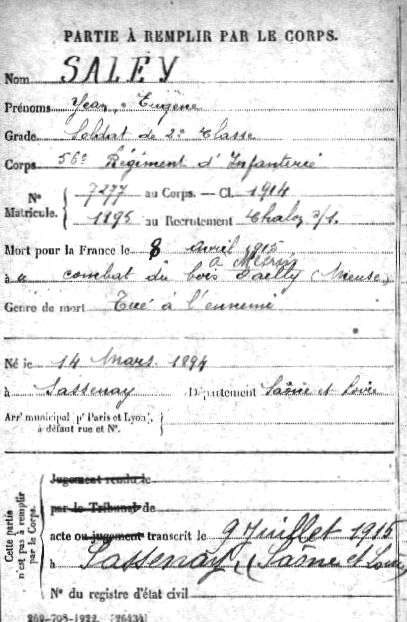 PARTIE À REMPLIR PAR LE CORPS.
Nom SALEY
Prénoms Jean, Eugène
Grade Soldat de 2e Classe
Corps 56e Régiment d'Infanterie
N° Matricule. 7277 au Corps. — Cl. 1914
1895 au Recrutement Chalon s/s.
Mort pour la France le 8 avril 1915
a Mécrin
à a combat du bois d'ailly (Meuse)
Genre de mort Tué à l'ennemi
Né le 14 Mars 1894
à Sassenay Département Saône et Loire
Arrt municipal (pr Paris et Lyon),
à défaut rue et N°.
Cette partie n'est pas à remplir par le Corps.
Jugement rendu le
par le Tribunal de
acte ou jugement transcrit le 9 Juillet 1915
à Sassenay (Saône et Loire)
N° du registre d'état civil
269-708-1922. [26434]